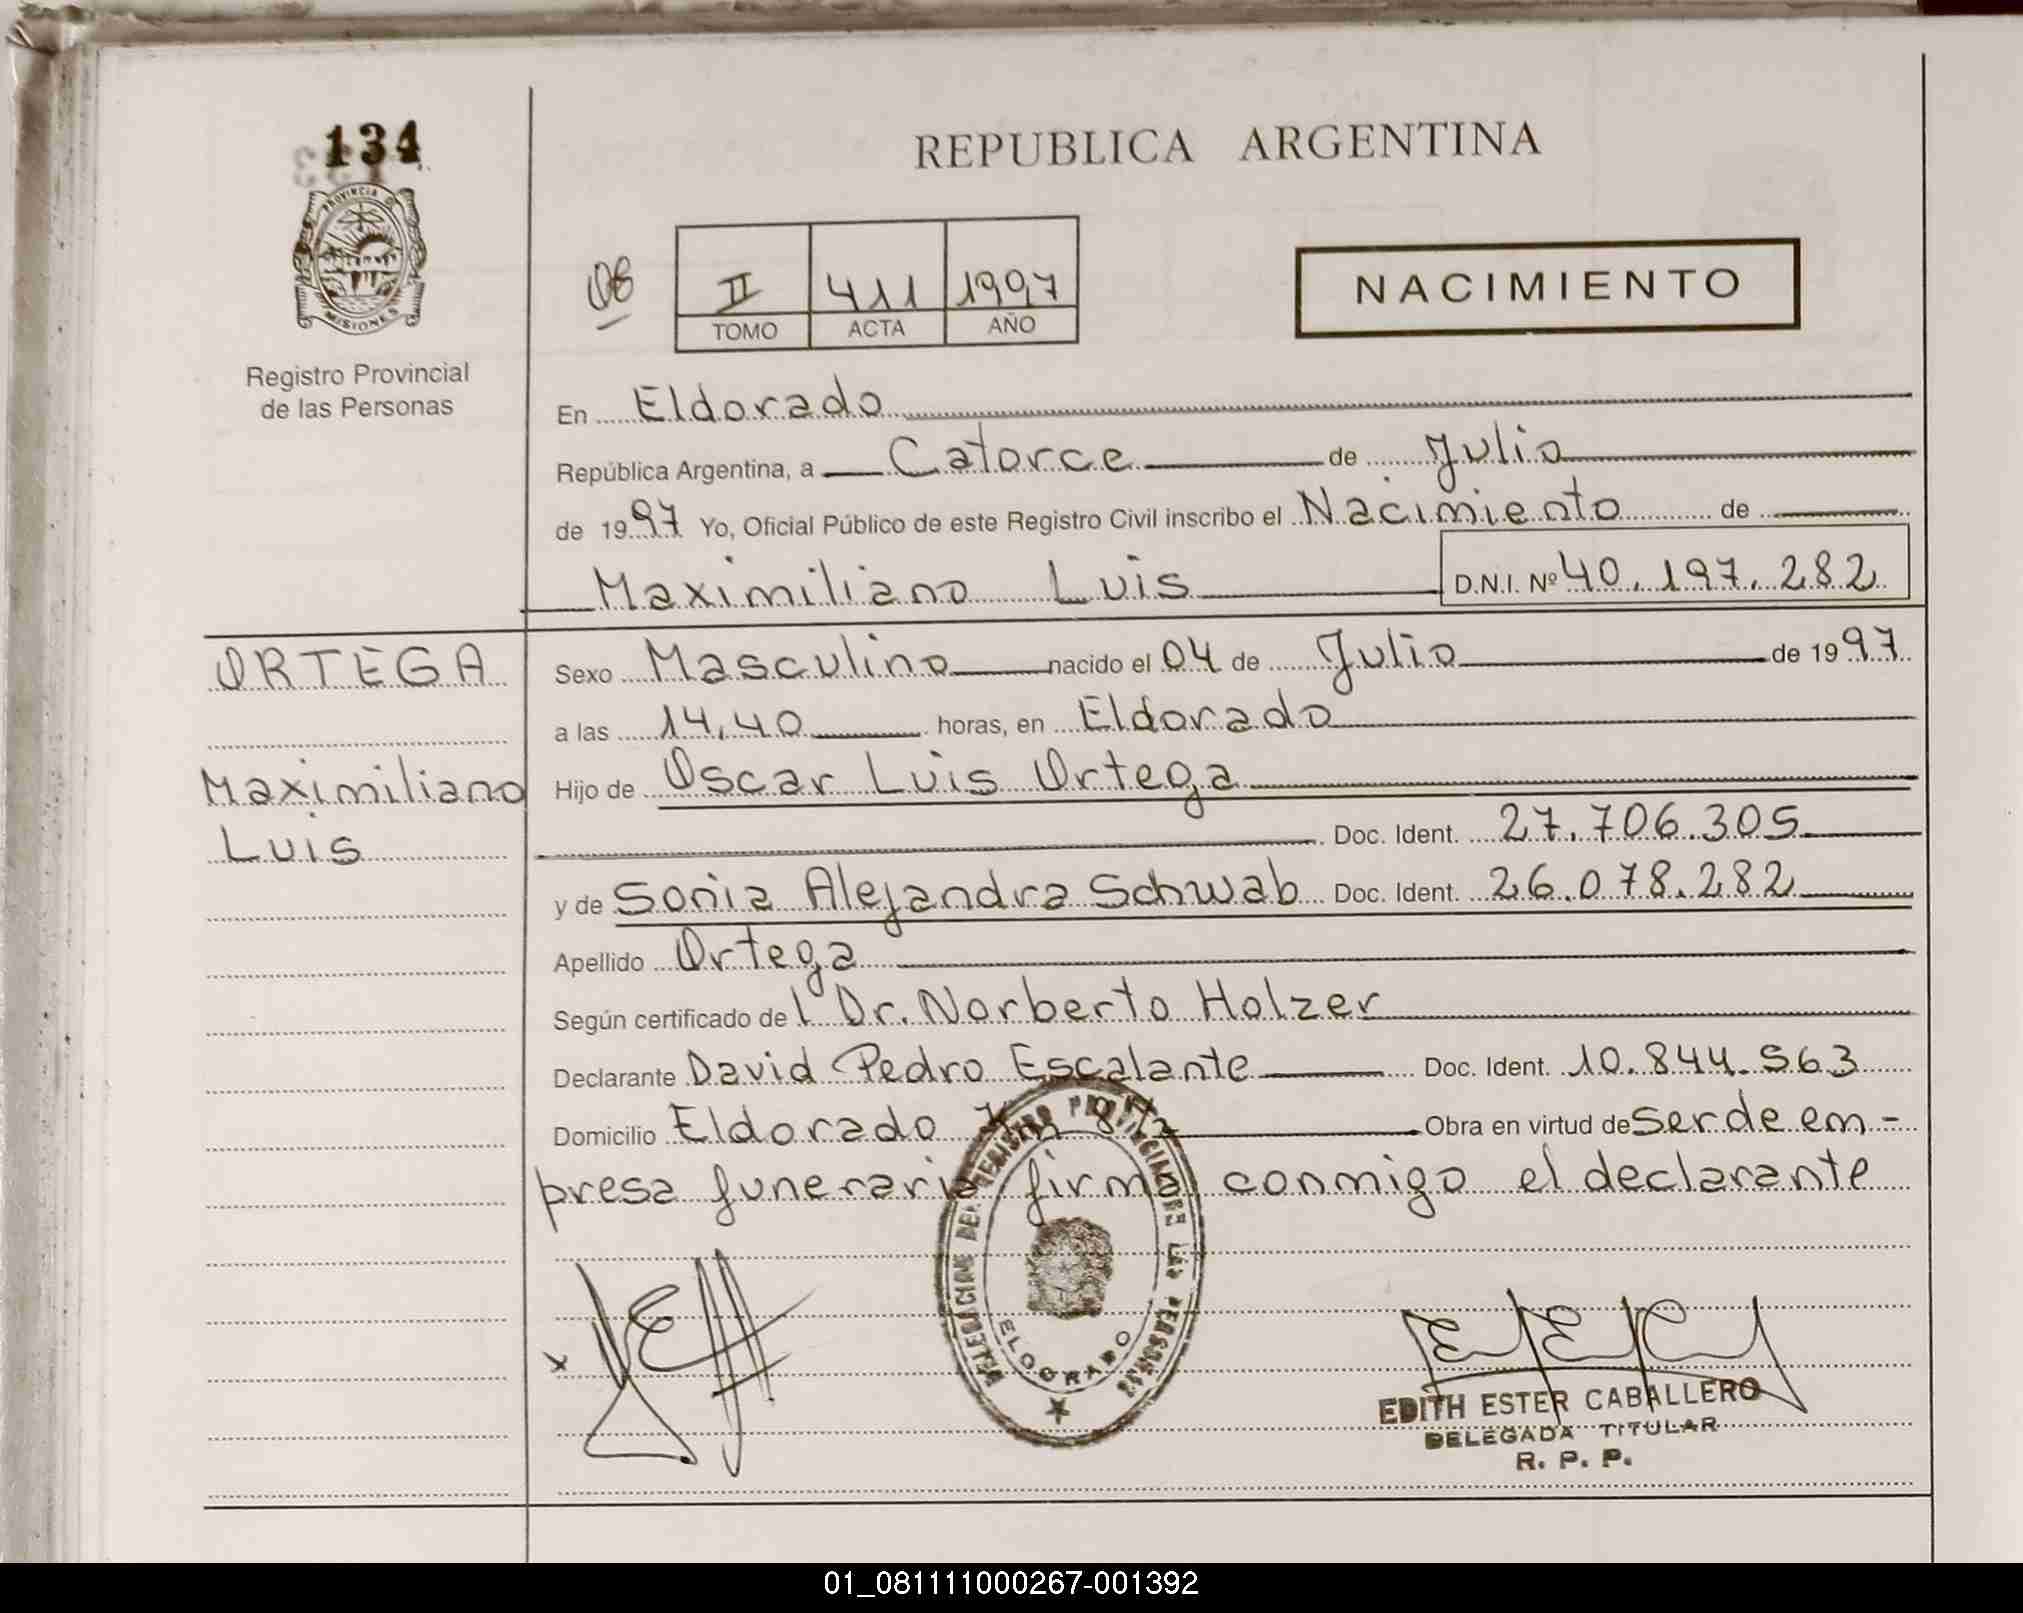 134
REPUBLICA ARGENTINA
PROVINCIA D MISIONES
Registro Provincial
de las Personas
08
II 411 1997
TOMO ACTA AÑO
NACIMIENTO
En Eldorado
República Argentina, a Catorce de Julio
de 1997 Yo, Oficial Público de este Registro Civil inscribo el Nacimiento de
Maximiliano Luis D.N.I. Nº 40.197.282
ORTEGA
Maximiliano
Luis
Sexo Masculino nacido el 04 de Julio de 1997
a las 14,40 horas, en Eldorado
Hijo de Oscar Luis Ortega
Doc. Ident. 27.706.305
y de Sonia Alejandra Schwab Doc. Ident. 26.078.282
Apellido Ortega
Según certificado del Dr. Norberto Holzer
Declarante David Pedro Escalante Doc. Ident. 10.844.563
Domicilio Eldorado Km 8 Obra en virtud de ser de em-
presa funeraria firma conmigo el declarante
DELEGACION DEL REGISTRO PROVINCIAL DE LAS PERSONAS
ELDORADO
x
EDITH ESTER CABALLERO
DELEGADA TITULAR
R. P. P.
01_081111000267-001392